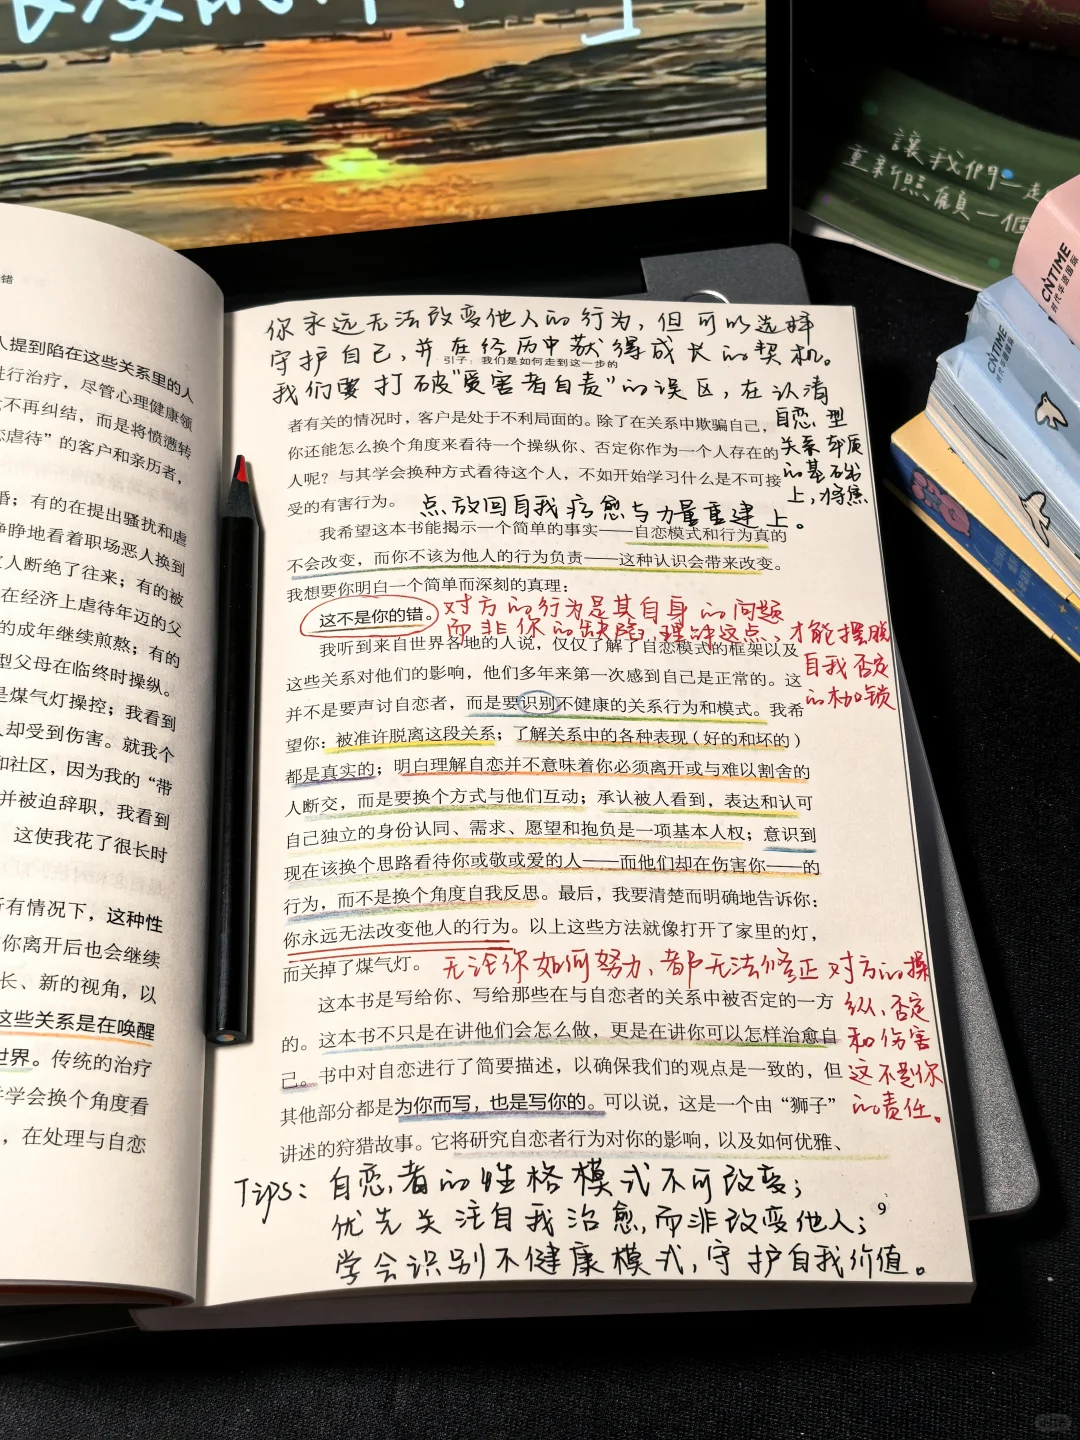 讓我們一起
重新照顧一個
CNTIME
时代华语国际
CNTIME
时代华语国际
错
人提到陷在这些关系里的人
进行治疗，尽管心理健康领
不再纠结，而是将愤懑转
恋虐待”的客户和亲历者，
婚；有的在提出骚扰和虐
静静地看着职场恶人换到
人断绝了往来；有的被
在经济上虐待年迈的父
的成年继续煎熬；有的
型父母在临终时操纵。
是煤气灯操控；我看到
人却受到伤害。就我个
和社区，因为我的“带
并被迫辞职，我看到
这使我花了很长时
所有情况下，这种性
你离开后也会继续
长、新的视角，以
这些关系是在唤醒
世界。传统的治疗
学会换个角度看
，在处理与自恋
你永远无法改变他人的行为，但可以选择
守护自己，并在经历中获得成长的契机。
引子：我们是如何走到这一步的
我们要打破“受害者自责”的误区，在认清
自恋型
关系本质
的基础
上，将焦
点放回自我疗愈与力量重建上。
者有关的情况时，客户是处于不利局面的。除了在关系中欺骗自己，
你还能怎么换个角度来看待一个操纵你、否定你作为一个人存在的
人呢？与其学会换种方式看待这个人，不如开始学习什么是不可接
受的有害行为。
我希望这本书能揭示一个简单的事实——自恋模式和行为真的
不会改变，而你不该为他人的行为负责——这种认识会带来改变。
我想要你明白一个简单而深刻的真理：
这不是你的错。
对方的行为是其自身的问题
而非你的缺陷，理解这点，才能摆脱
自我否定
的枷锁
我听到来自世界各地的人说，仅仅了解了自恋模式的框架以及
这些关系对他们的影响，他们多年来第一次感到自己是正常的。这
并不是要声讨自恋者，而是要识别不健康的关系行为和模式。我希
望你：被准许脱离这段关系；了解关系中的各种表现（好的和坏的）
都是真实的；明白理解自恋并不意味着你必须离开或与难以割舍的
人断交，而是要换个方式与他们互动；承认被人看到，表达和认可
自己独立的身份认同、需求、愿望和抱负是一项基本人权；意识到
现在该换个思路看待你或敬或爱的人——而他们却在伤害你——的
行为，而不是换个角度自我反思。最后，我要清楚而明确地告诉你：
你永远无法改变他人的行为。以上这些方法就像打开了家里的灯，
而关掉了煤气灯。
无论你如何努力，都无法修正对方的操
纵、否定
和伤害
这不是你
的责任。
这本书是写给你、写给那些在与自恋者的关系中被否定的一方
的。这本书不只是在讲他们会怎么做，更是在讲你可以怎样治愈自
己。书中对自恋进行了简要描述，以确保我们的观点是一致的，但
其他部分都是为你而写，也是写你的。可以说，这是一个由“狮子”
讲述的狩猎故事。它将研究自恋者行为对你的影响，以及如何优雅、
Tips：自恋者的性格模式不可改变；
优先关注自我治愈，而非改变他人；
9
学会识别不健康模式，守护自我价值。